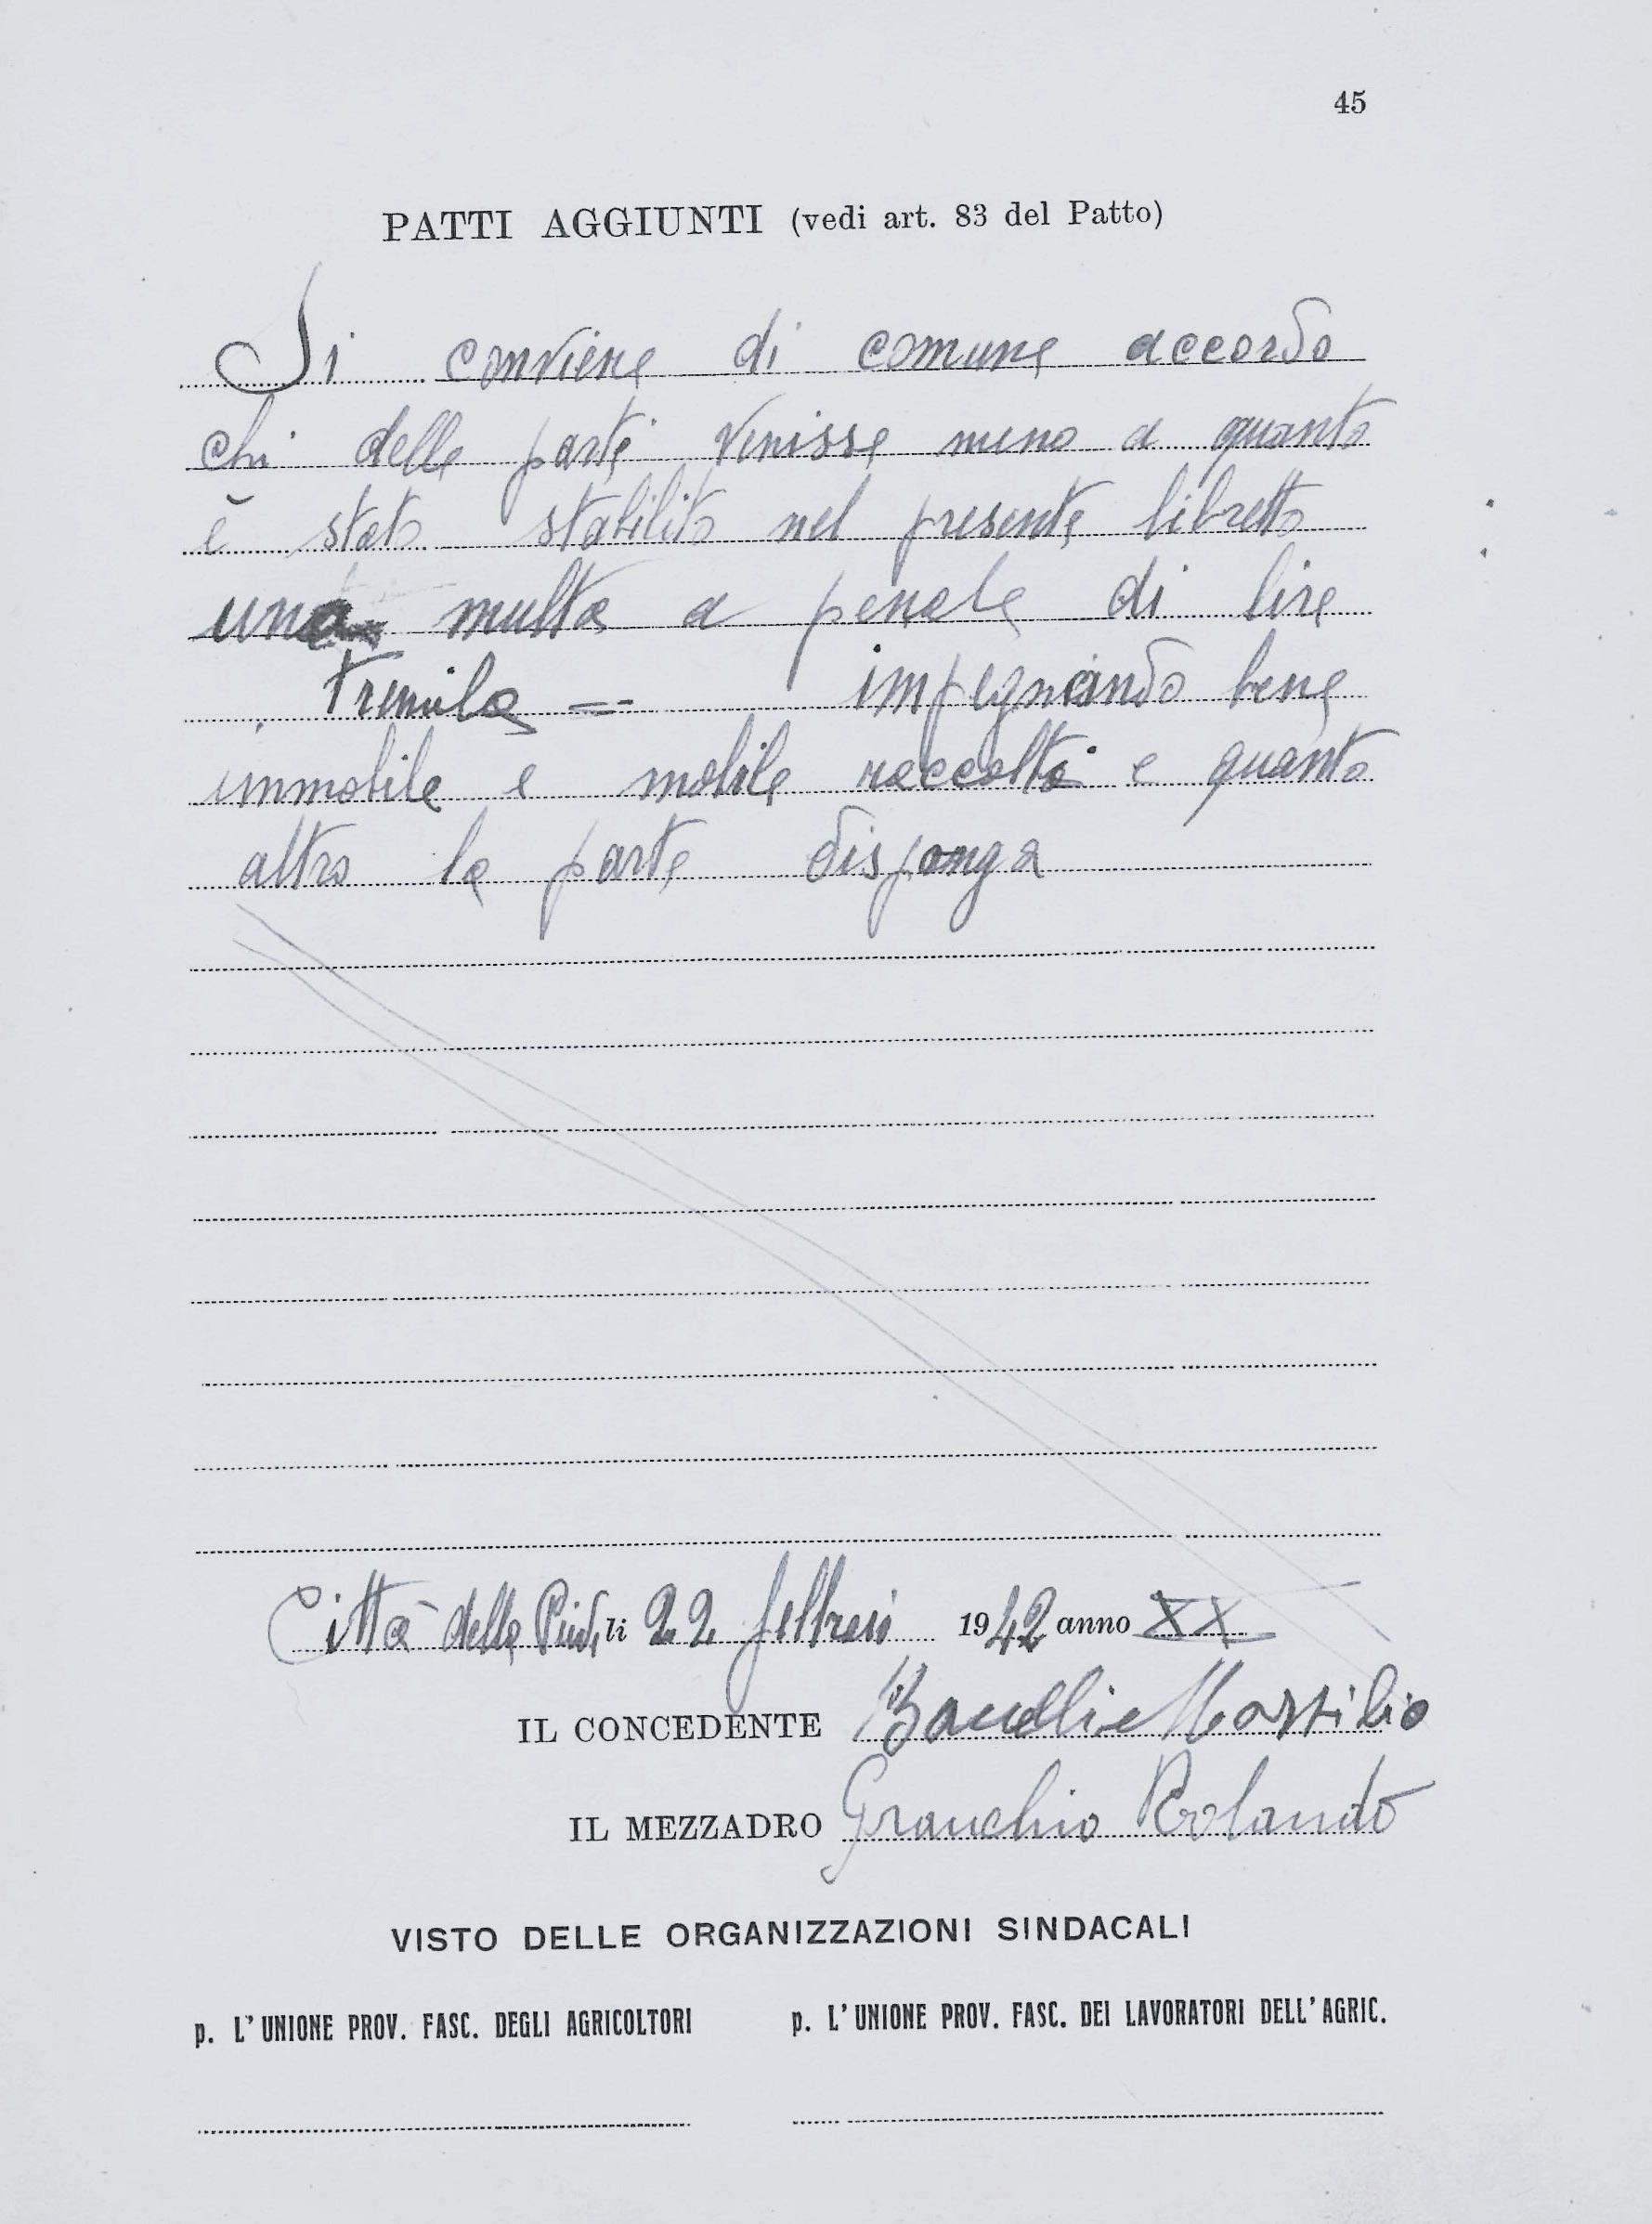 45
PATTI AGGIUNTI (vedi art. 83 del Patto)
Si conviene di comune accordo
chi delle parti venisse meno a quanto
è stato stabilito nel presente libretto
una multa a penale di lire
tremila = impegnando bene
immobile e mobile raccolti e quanto
altro la parte disponga
Città della Pieve, li 22 febbraio 1942 anno XX
IL CONCEDENTE Marsilio
IL MEZZADRO Granchio Rolando
VISTO DELLE ORGANIZZAZIONI SINDACALI
p. L'UNIONE PROV. FASC. DEGLI AGRICOLTORI p. L'UNIONE PROV. FASC. DEI LAVORATORI DELL'AGRIC.